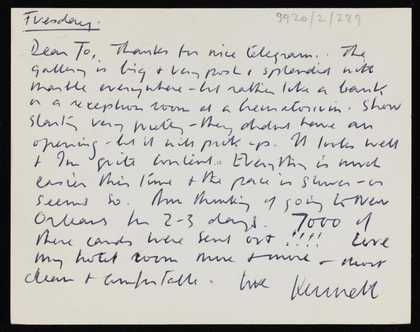 9920/2/289
Tuesday.
Dear To, Thanks for nice telegram. The
gallery is big + very posh + splendid with
marble everywhere - but rather like a bank
or a reception room at a crematorium. Show
starting very quietly - they didnt have an
opening - but it will pick up. It looks well
+ Im quite content. Everything is much
easier this time + the pace is slower - or
seems so. Am thinking of going to New
Orleans for 2-3 days. 7000 of
these cards were sent out !!!! Love
my hotel room more + more - most
clean + comfortable. love Kenneth